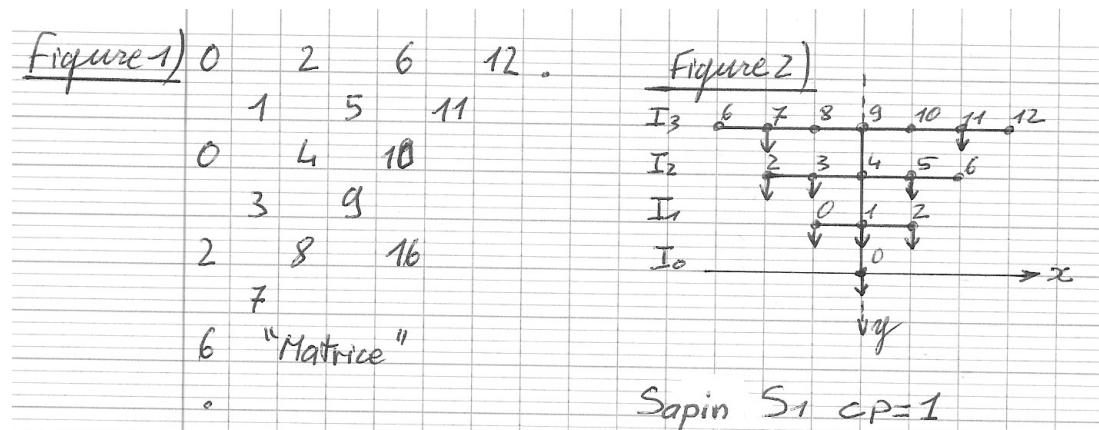 Figure 1) 0 2 6 12 .
1 5 11
0 4 10
3 9
2 8 16
7
6 "Matrice"
.
Figure 2)
I3 6 7 8 9 10 11 12
I2 2 3 4 5 6
I1 0 1 2
I0 0 x
y
Sapin S1 cp=1